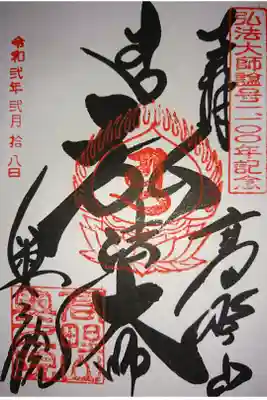 弘法大師諡号一一〇〇年記念
高野山
弘法大師
奥之院
令和弐年弐月拾八日